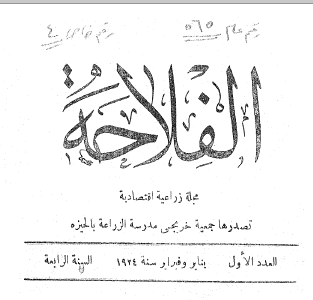 رقم عام ٥٦٥ رقم خاص ٤
الفلاحة
مجلة زراعية اقتصادية
تصدرها جمعية خريجى مدرسة الزراعة بالجيزه
العدد الأول يناير وفبراير سنة ١٩٢٤ السنة الرابعة